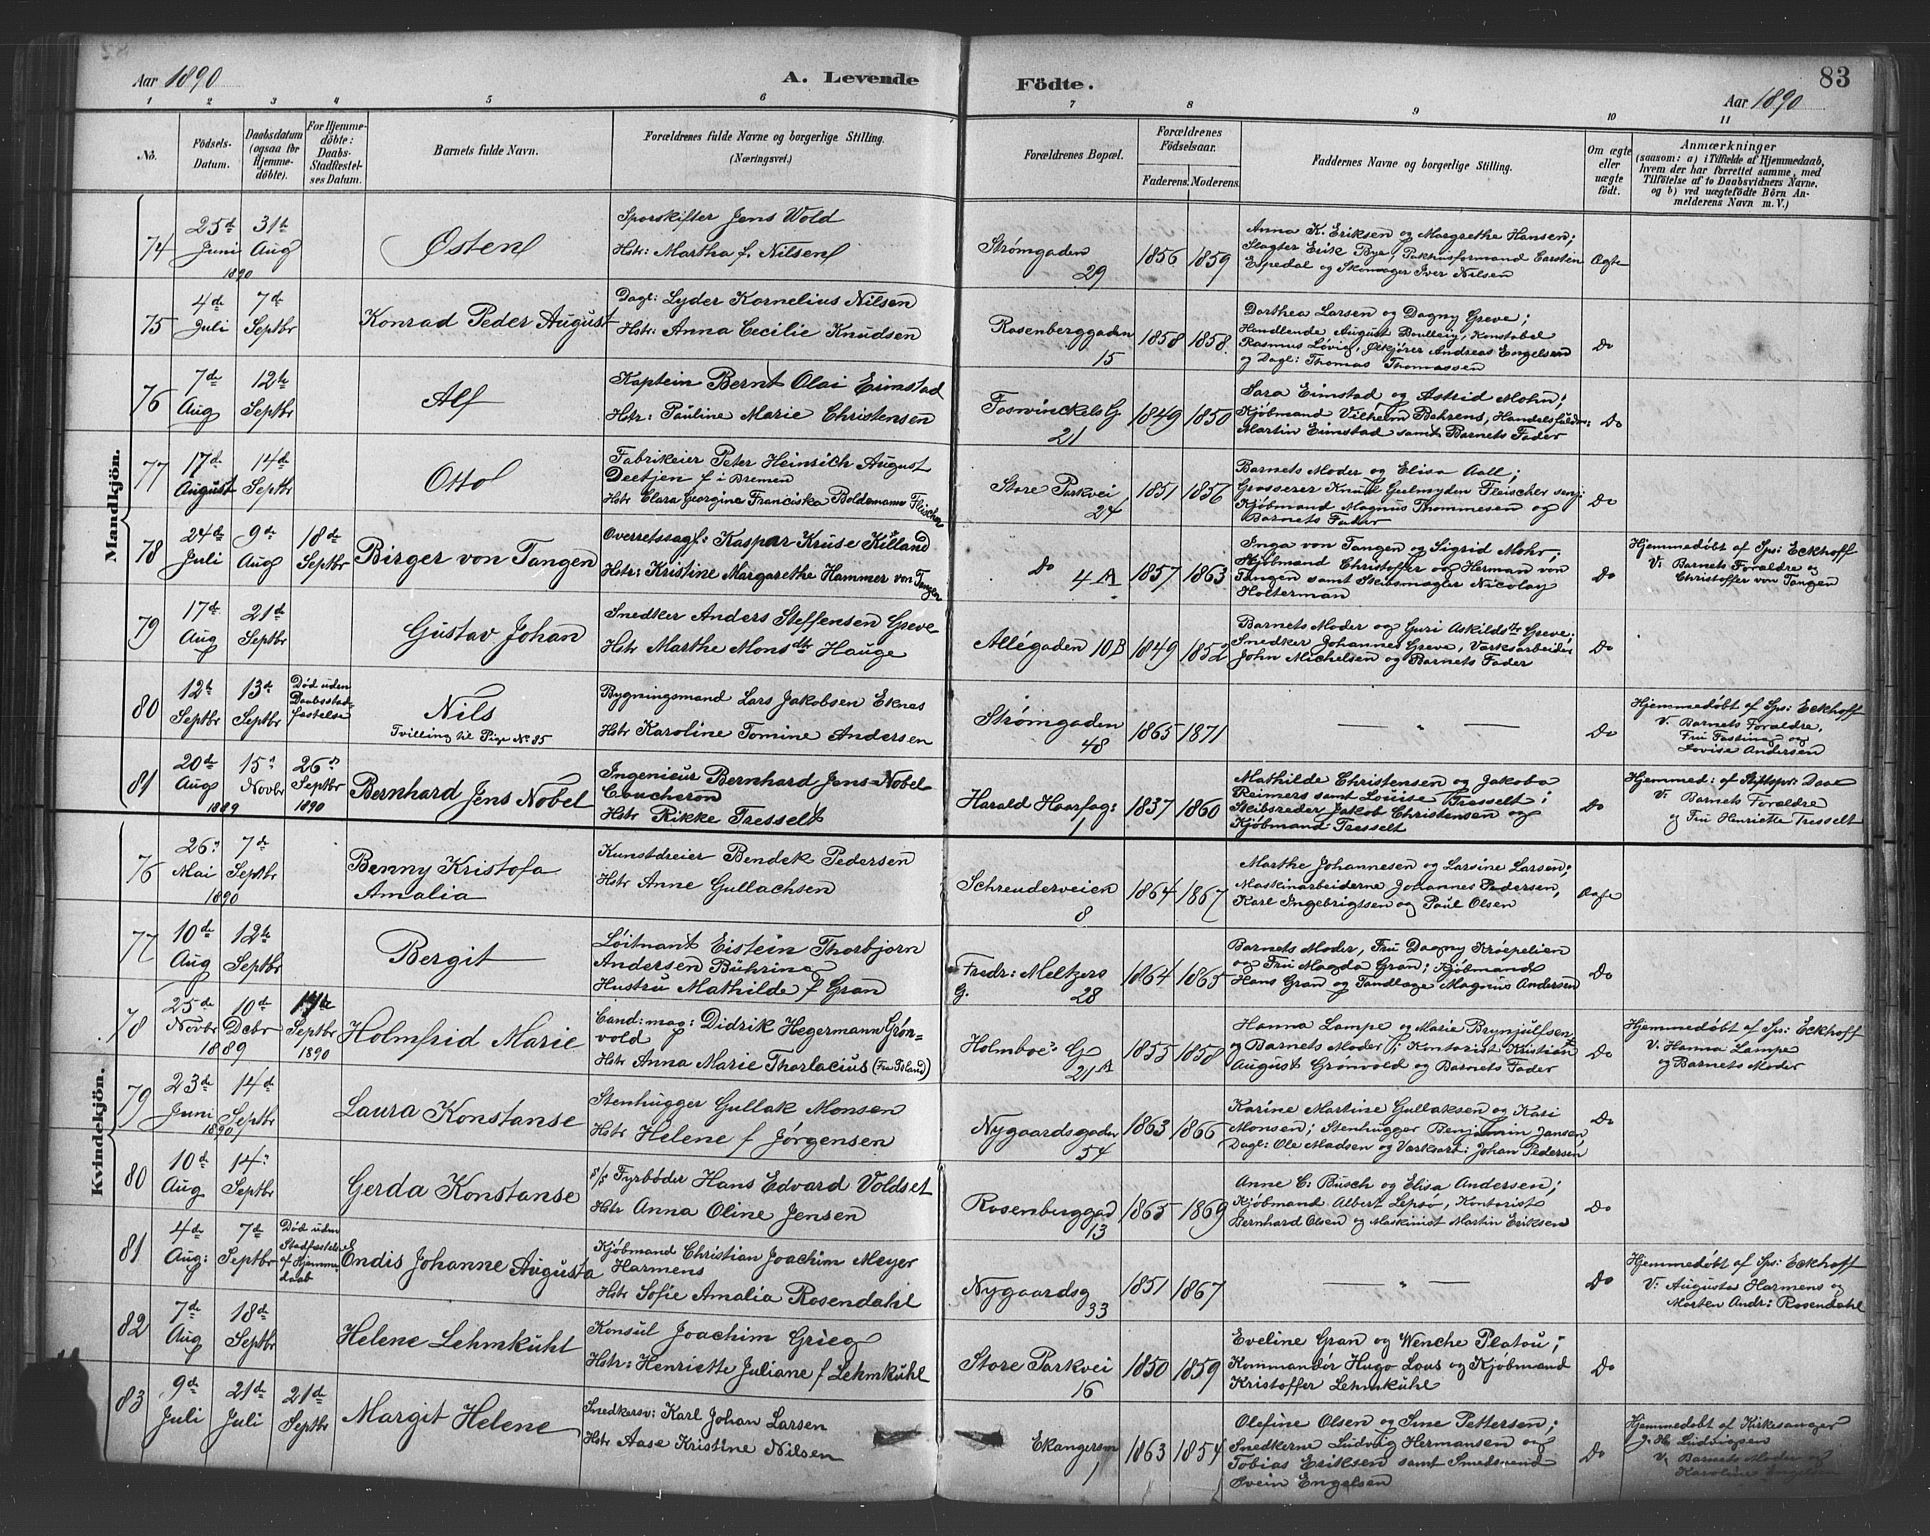 Aar 1890
A. Levende Födte.
83
Aar 1890
1 2 3 4 5 6 7 8 9 10 11
No.
Födsels-Datum.
Daabsdatum (ogsaa for Hjemme-döbte).
For Hjemme-döbte: Daabs-Stadfestel-ses Datum.
Barnets fulde Navn.
Forældrenes fulde Navne og borgerlige Stilling.
(Næringsvei.)
Forældrenes Bopæl.
Forældrenes Födselsaar.
Faderens. Moderens.
Faddernes Navne og borgerlige Stilling.
Om ægte eller uægte födt.
Anmærkninger
(saasom: a) i Tilfælde af Hjemmedaab,
hvem der har forrettet samme, med
Tilföielse af to Daabsvidners Navne,
og b) ved uægtefödte Börn An-
melderens Navn m. V.)
Mandkjön.
74
25de Juni 1890
31te Aug
Østen
Sporskifter Jens Wold
Hstr: Martha f. Nilsen
Strømgaden 29
1856 1859
Anna K. Eriksen og Margrethe Hansen;
Slagter Erik Bye, Pakhusformand Carsten
Espedal og Skomager Iver Nilsen
Ægte
75
4de Juli
7de Septbr
Konrad Peder August
Dagl: Lyder Kornelius Nilsen
Hstr: Anna Cecilie Knudsen
Rosenberggaden 15
1858 1858
Dorthea Larsen og Dagny Greve;
Handlende August Konstabel
Rasmus Løvig, Andreas Engelsen
og Dagl: Thomas Thomassen
Do
76
7de Aug
12te Septbr
Alf
Kaptein Bernt Olai Eimstad
Hstr: Pauline Marie Christensen
Foswinckels G 21
1849 1850
Sara Eimstad og Astrid Mohn;
Kjøbmand Vilhelm Behrens,
Martin Eimstad samt Barnets Fader
Do
77
17de August
14de Septbr
Otto
Fabrikeier Peter Heinrich August
Deetjen f i Bremen
Hstr Clara Georgine Franciska Boldemann Fleischer
Store Parkvei 24
1851 1856
Barnets Moder og Elisa Aall;
Grosserer Knud Geelmyden Fleischer senj:
Kjøbmand Magnus Thommesen og
Barnets Fader
Do
78
24de Juli
9de Aug
18de Septbr
Birger von Tangen
Overretssagf: Kaspar Kruse Killand
Hstr: Kristine Margarethe Hammer von Tangen
Do 4 A
1857 1863
Inga von Tangen og Sigrid Mohr;
Kjøbmand Christoffer og Herman von
Tangen samt Skibsmægler Nicolay
Holterman
Do
Hjemmedøbt af Sps: Eckhoff
V: Barnets Forældre og
Christoffer von Tangen
79
17de Aug
21de Septbr
Gustav Johan
Snedker Anders Steffensen Greve
Hstr Marthe Monsdtr Hauge
Allégaden 10 B
1849 1852
Barnets Moder og Guri Askildsdtr Greve;
Snedker Johannes Greve, Værksarbeider
John Michelsen og Barnets Fader
Do
80
12te Septbr
13de Septbr
Død uden Daabsstad-fæstelse
Nils
Tvilling til Pige No 85
Bygningsmand Lars Jakobsen Eknes
Hstr Karoline Tomine Andersen
Strømgaden 48
1865 1871
— " —
Do
Hjemmedøbt af Sps: Eckhoff
V. Barnets Forældre,
Fru Fasting og
Lovise Andersen
81
20de Aug 1889
15de Novbr
26de Septbr 1890
Bernhard Jens Nobel
Ingenieur Bernhard Jens-Nobel
Coucheron
Hstr Rikke Tresselt
Harald Haarfag: 1
1837 1860
Mathilde Christensen og Jakoba
Reimers samt Louise Tresselt;
Skibsreder Jakob Christensen og
Kjøbmand Tresselt
Do
Hjemmed: af Stiftspr: Daae
V: Barnets Forældre
og Fru Henriette Tresselt
Kvindekjön.
76
26de Mai 1890
7de Septbr
Benny Kristofa
Amalia
Kunstdreier Bendek Pedersen
Hstr Anne Gullachsen
Schreuderveien 8
1864 1867
Marthe Johannesen og Larsine Larsen;
Maskinarbeiderne Johannes Pedersen,
Karl Ingebrigtsen og Paul Olsen
Ægte
77
10de Aug
12te Septbr
Bergit
Løitnant Eistein Thorbjørn
Andersen Bühring
Hustru Mathilde f Gran
Fredr: Meltzers G. 28
1864 1865
Barnets Moder, Fru Dagny Krøepelien
og Fru Magda Gran; Kjøbmand
Hans Gran og Tandlæge Magnus Andersen
Do
78
25de Novbr 1889
10de Debr
Septbr 1890
Holmfrid Marie
Cand: mag: Didrik Hegermann Grøn-
vold
Hstr Anna Marie Thorlacius (Fra Island)
Holmboes G 21 A
1855 1858
Hanna Lampe og Marie Brynjulfsen
og Barnets Moder; Kontorist Kristian
August Grønvold og Barnets Fader
Do
Hjemmedøbt af Sps: Eckhoff
V: Hanna Lampe
og Barnets Moder
79
23de Juni 1890
14de Septbr
Laura Konstanse
Stenhugger Gullak Monsen
Hstr Helene f Jørgensen
Nygaardsgaden 54
1863 1866
Karine Martine Gullaksen og Kari
Monsen; Stenhugger Benjamin Jansen,
Dagl: Ole Madsen og Værksarb: Johan Pedersen
Do
80
10de Aug
14de Septbr
Gerda Konstanse
s/s Fyrbøder Hans Edvard Voldset
Hstr Anna Oline Jensen
Rosenberggad 13
1865 1869
Anne C. Busch og Elisa Andersen;
Kjøbmand Albert Lepsø, Kontorist
Bernhard Olsen og Maskinist Martin Eriksen
Do
81
4de Aug:
7de Septbr
Død uden Stadfæstelse af Hjemme-daab
Endis Johanne Augusta
Kjøbmand Christian Joachim Meyer
Harmens
Hstr Sofie Amalia Rosendahl
Nygaardsg 33
1851 1867
— " —
Do
Hjemmedøbt af Sps: Eckhoff
V: Augusta Harmens og
Morten Andr: Rosendahl
82
7de Aug
18de Septbr
Helene Lehmkuhl
Konsul Joachim Grieg
Hstr: Henriette Juliane f Lehmkuhl
Store Parkvei 16
1850 1859
Eveline Gran og Wenche Platou;
Kommandør Hugo Lous og Kjøbmand
Kristoffer Lehmkuhl
Do
83
9de Juli
21de Juli
21de Septbr
Margit Helene
Snedkersv: Karl Johan Larsen
Hstr Aase Kristine Nilsen
Ekangersm 1
1863 1854
Olefine Olsen og Sine Pettersen;
Snedkerne Ludvig Hermansen og
Tobias Eriksen samt Smedsvend
Svein Engelsen
Do
Hjemmedøbt af Kirkesanger
J. H. Ludvigsen
V. Barnets Moder og
Karoline Engelsen